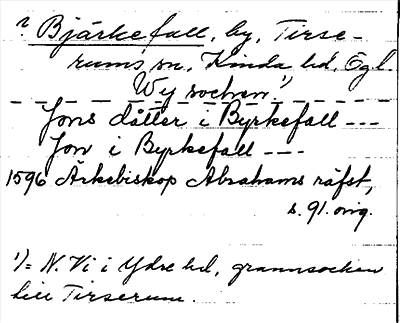 ? Bjärkefall, by, Tirse-
rums sn, Kinda hd, Ögl.
Wij sochen 1)
Jons dåtter i Byrkefall ---
Jon i Byrkefall ---
1596 Ärkebiskop Abrahams räfst,
s. 91. orig.
1) = N. Vi i Ydre hd, grannsocken
till Tirserum.